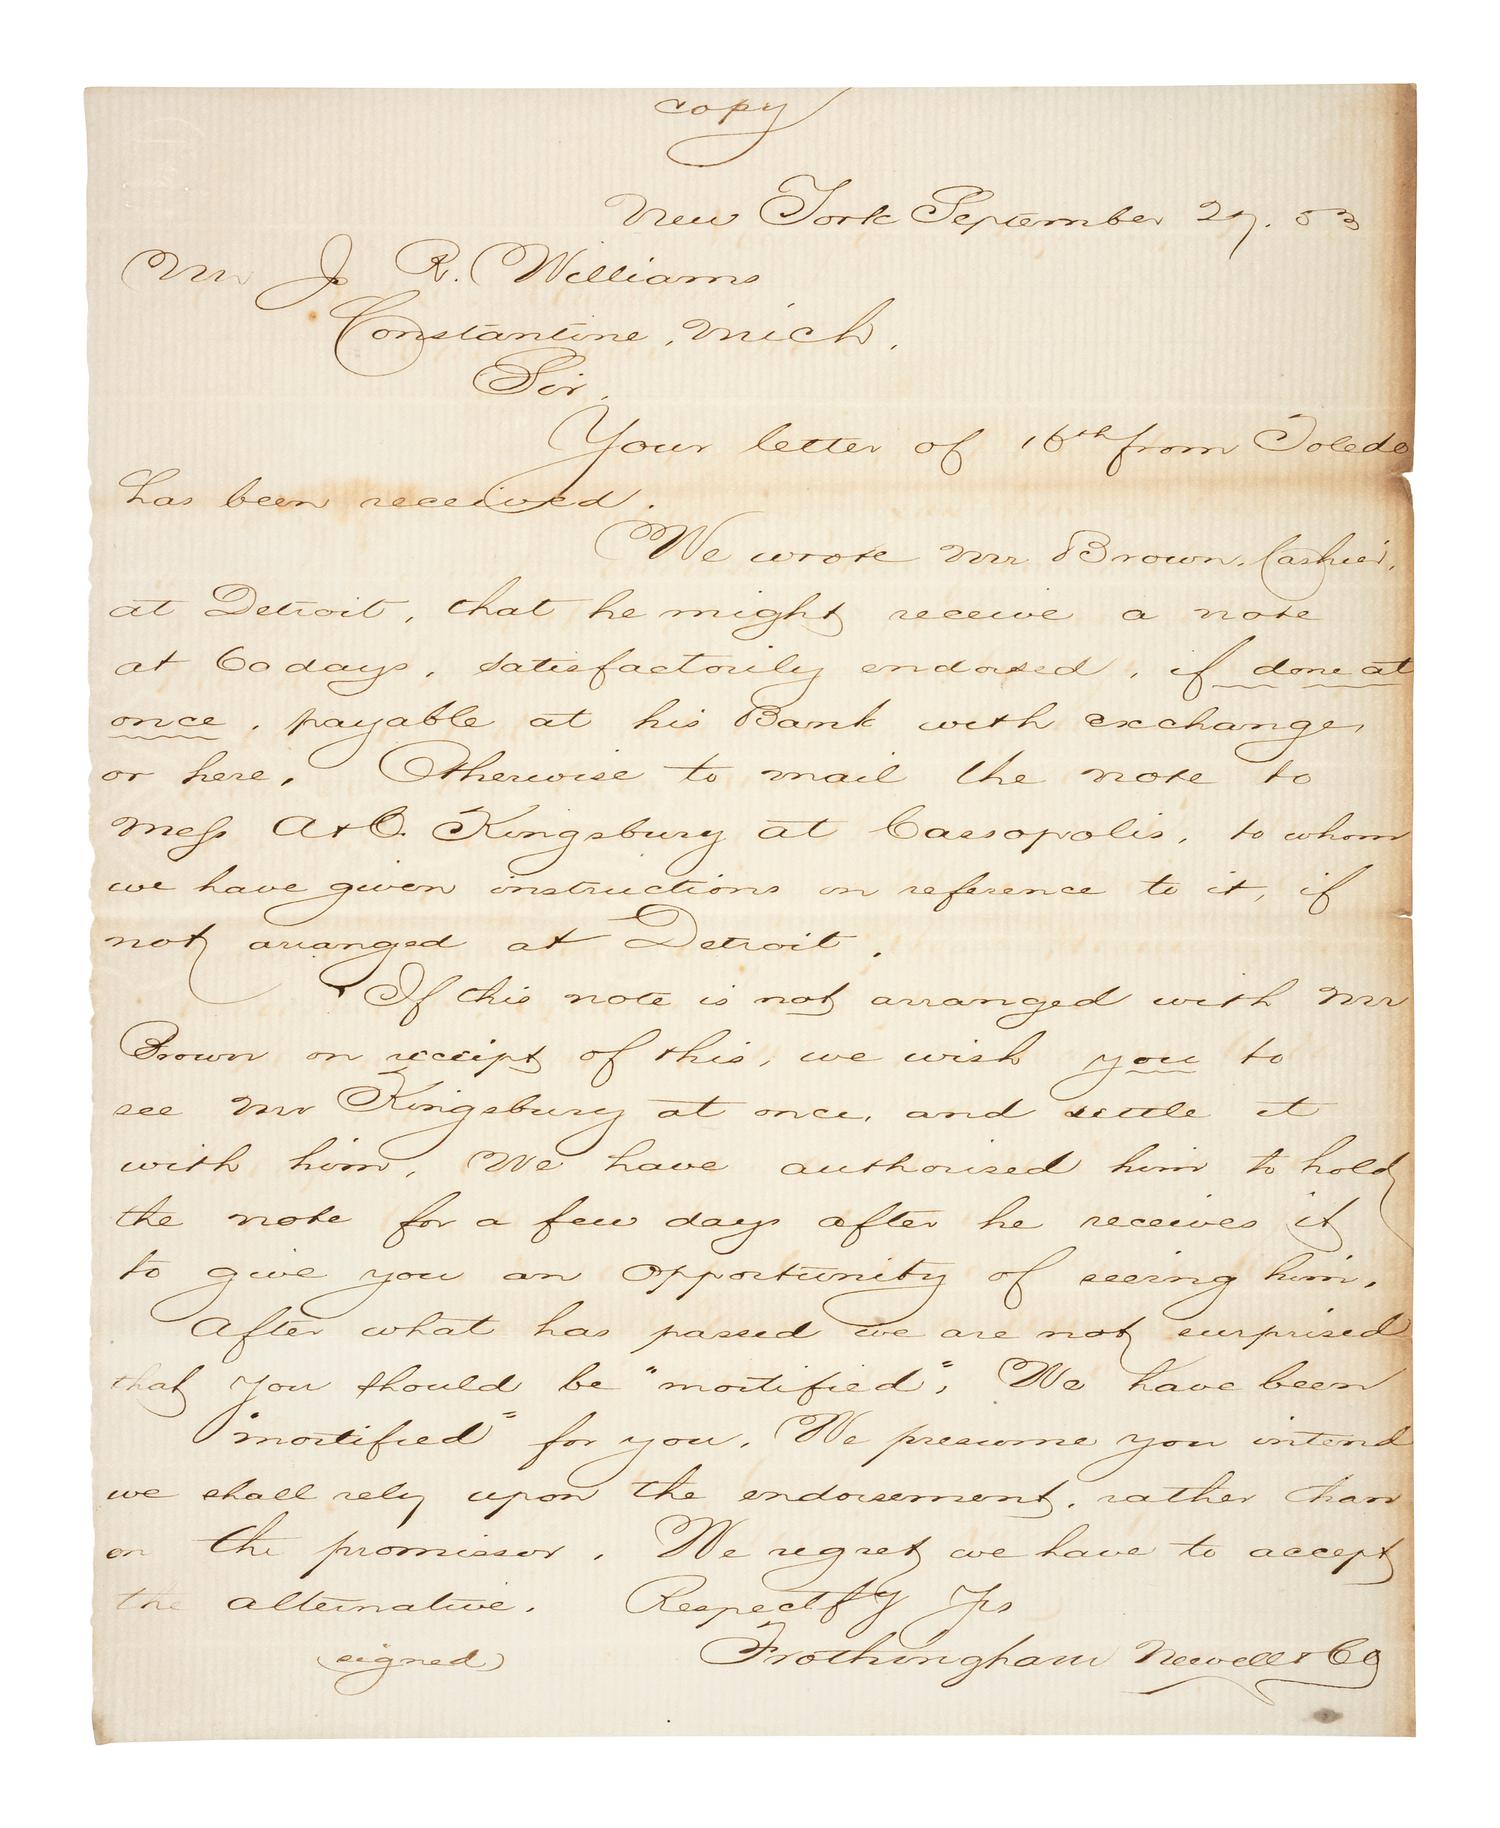 copy
New York September 27. 53
Mr J. R. Williams
Constantine, Mich.
Sir,
Your letter of 16th from Toledo
has been received.
We wrote Mr Brown, Cashier,
at Detroit, that he might receive a note
at 60 days, satisfactorily endorsed, if done at
once, payable at his Bank with exchange,
or here. Otherwise to mail the note to
Mess A & C. Kingsbury at Cassopolis, to whom
we have given instructions in reference to it, if
not arranged at Detroit.
If this note is not arranged with Mr
Brown on receipt of this, we wish you to
see Mr Kingsbury at once, and settle it
with him. We have authorised him to hold
the note for a few days after he receives it
to give you an opportunity of seeing him.
After what has passed we are not surprised
that you should be "mortified". We have been
"mortified" for you. We presume you intend
we shall rely upon the endorsement, rather than
on the promissor. We regret we have to accept
the alternative. Respectfy Yrs
(signed) Frothingham Newell & Co